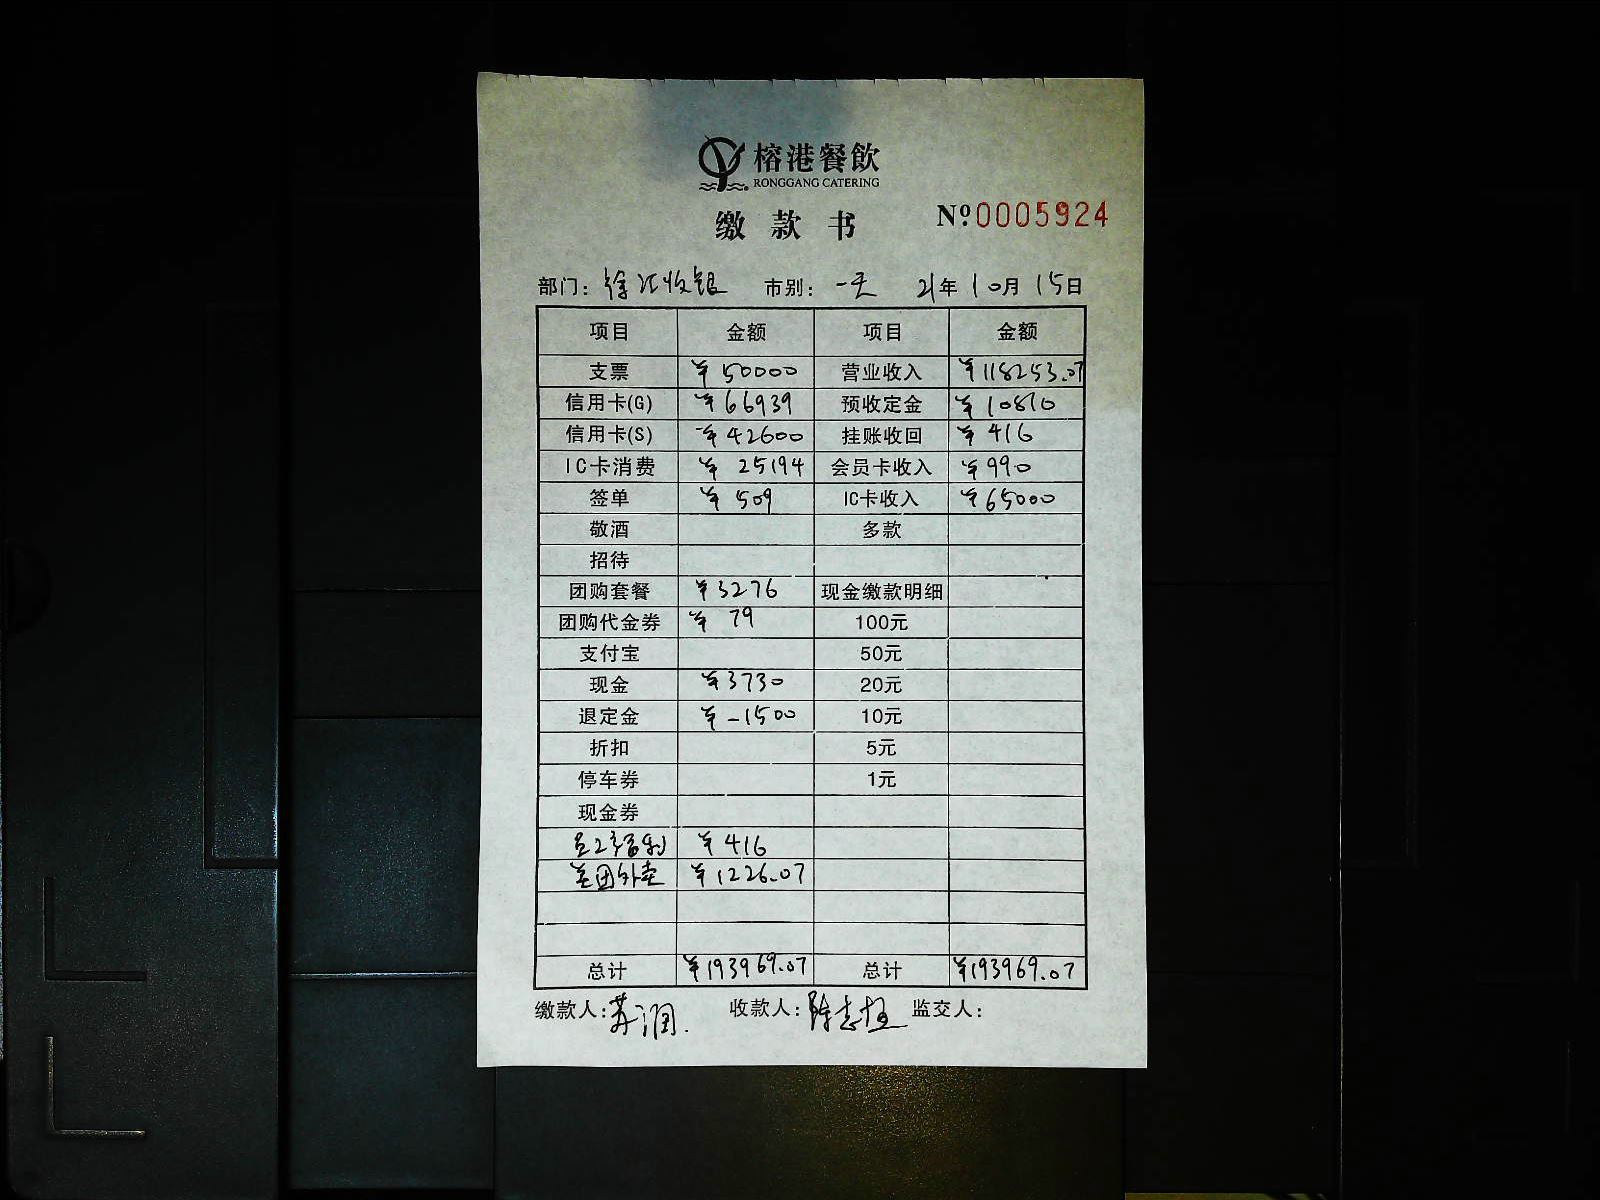 榕港餐飲
RONGGANG CATERING
缴款书 Nº 0005924
部门: 徐汇收银 市别: 一天 21年10月15日
项目 金额 项目 金额
支票 ¥50000 营业收入 ¥118253.07
信用卡(G) ¥66939 预收定金 ¥10810
信用卡(S) ¥42600 挂账收回 ¥416
IC卡消费 ¥25194 会员卡收入 ¥990
签单 ¥509 IC卡收入 ¥65000
敬酒 多款
招待
团购套餐 ¥3276 现金缴款明细
团购代金券 ¥79 100元
支付宝 50元
现金 ¥3730 20元
退定金 ¥-1500 10元
折扣 5元
停车券 1元
现金券
员工福利 ¥416
美团外卖 ¥1226.07
总计 ¥193969.07 总计 ¥193969.07
缴款人: 苏润. 收款人: 陈志 监交人: